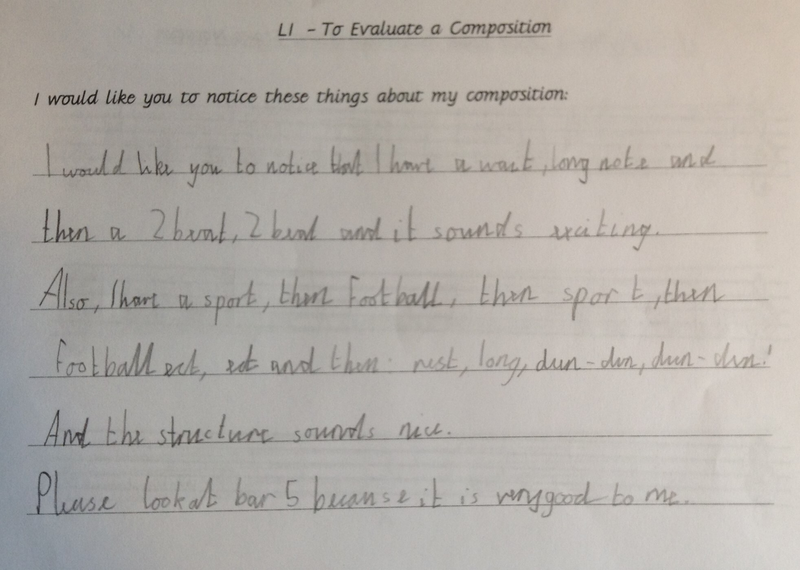 LI - To Evaluate a Composition
I would like you to notice these things about my composition:
I would like you to notice that I have a wait, long note and
then a 2 beat, 2 beat and it sounds exciting.
Also, I have a sport, then football, then sport, then
football ect, ect and then rest, long, dun-dun, dun-dun!
And the structure sounds nice.
Please look at bar 5 because it is very good to me.